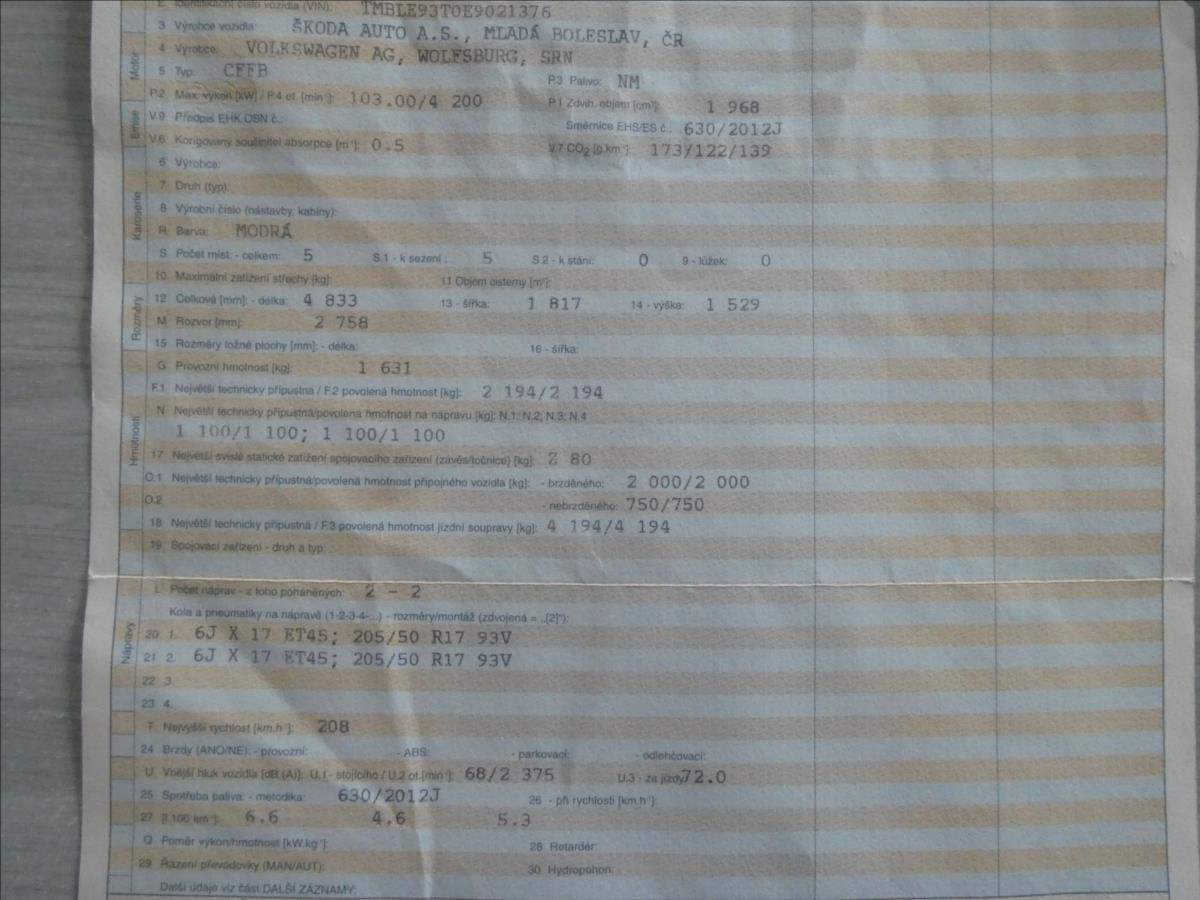 E Identifikační číslo vozidla (VIN): TMBLE93T0E9021376
3 Výrobce vozidla: ŠKODA AUTO A.S., MLADÁ BOLESLAV, ČR
4 Výrobce: VOLKSWAGEN AG, WOLFSBURG, SRN
Motor
5 Typ: CFFB P.3 Palivo: NM
P.2 Max. výkon [kW] / P.4 ot. [min⁻¹]: 103.00/4 200 P.1 Zdvih. objem [cm³]: 1 968
Emise
V.9 Předpis EHK OSN č.: Směrnice EHS/ES č.: 630/2012J
V.6 Korigovaný součinitel absorpce [m⁻¹]: 0.5 V.7 CO₂ [g.km⁻¹]: 173/122/139
6 Výrobce:
7 Druh (typ):
Karoserie
8 Výrobní číslo (nástavby, kabiny):
R Barva: MODRÁ
S Počet míst: - celkem: 5 S.1 - k sezení: 5 S.2 - k stání: 0 9 - lůžek: 0
10 Maximální zatížení střechy [kg]: 11 Objem cisterny [m³]:
Rozměry
12 Celková [mm]: - délka: 4 833 13 - šířka: 1 817 14 - výška: 1 529
M Rozvor [mm]: 2 758
15 Rozměry ložné plochy [mm]: - délka: 16 - šířka:
G Provozní hmotnost [kg]: 1 631
F.1 Největší technicky přípustná / F.2 povolená hmotnost [kg]: 2 194/2 194
N Největší technicky přípustná/povolená hmotnost na nápravu [kg]: N.1, N.2, N.3, N.4
1 100/1 100; 1 100/1 100
Hmotnosti
17 Největší svislé statické zatížení spojovacího zařízení (závěs/točnice) [kg]: Z 80
O.1 Největší technicky přípustná/povolená hmotnost přípojného vozidla [kg]: - brzděného: 2 000/2 000
O.2 - nebrzděného: 750/750
18 Největší technicky přípustná / F.3 povolená hmotnost jízdní soupravy [kg]: 4 194/4 194
19 Spojovací zařízení - druh a typ:
L Počet náprav - z toho poháněných: 2 - 2
Kola a pneumatiky na nápravě (1-2-3-4-...) - rozměry/montáž (zdvojená = „[2]"):
Nápravy
20 1. 6J X 17 ET45; 205/50 R17 93V
21 2. 6J X 17 ET45; 205/50 R17 93V
22 3.
23 4.
T Nejvyšší rychlost [km.h⁻¹]: 208
24 Brzdy (ANO/NE): - provozní: - ABS: - parkovací: - odlehčovací:
U Vnější hluk vozidla [dB (A)]: U.1 - stojícího / U.2 ot.[min⁻¹]: 68/2 375 U.3 - za jízdy: 72.0
25 Spotřeba paliva: - metodika: 630/2012J 26 - při rychlosti [km.h⁻¹]:
27 [l.100 km⁻¹]: 6.6 4.6 5.3
Q Poměr výkon/hmotnost [kW.kg⁻¹]: 28 Retardér:
29 Řazení převodovky (MAN/AUT): 30 Hydropohon:
Další údaje viz část DALŠÍ ZÁZNAMY: